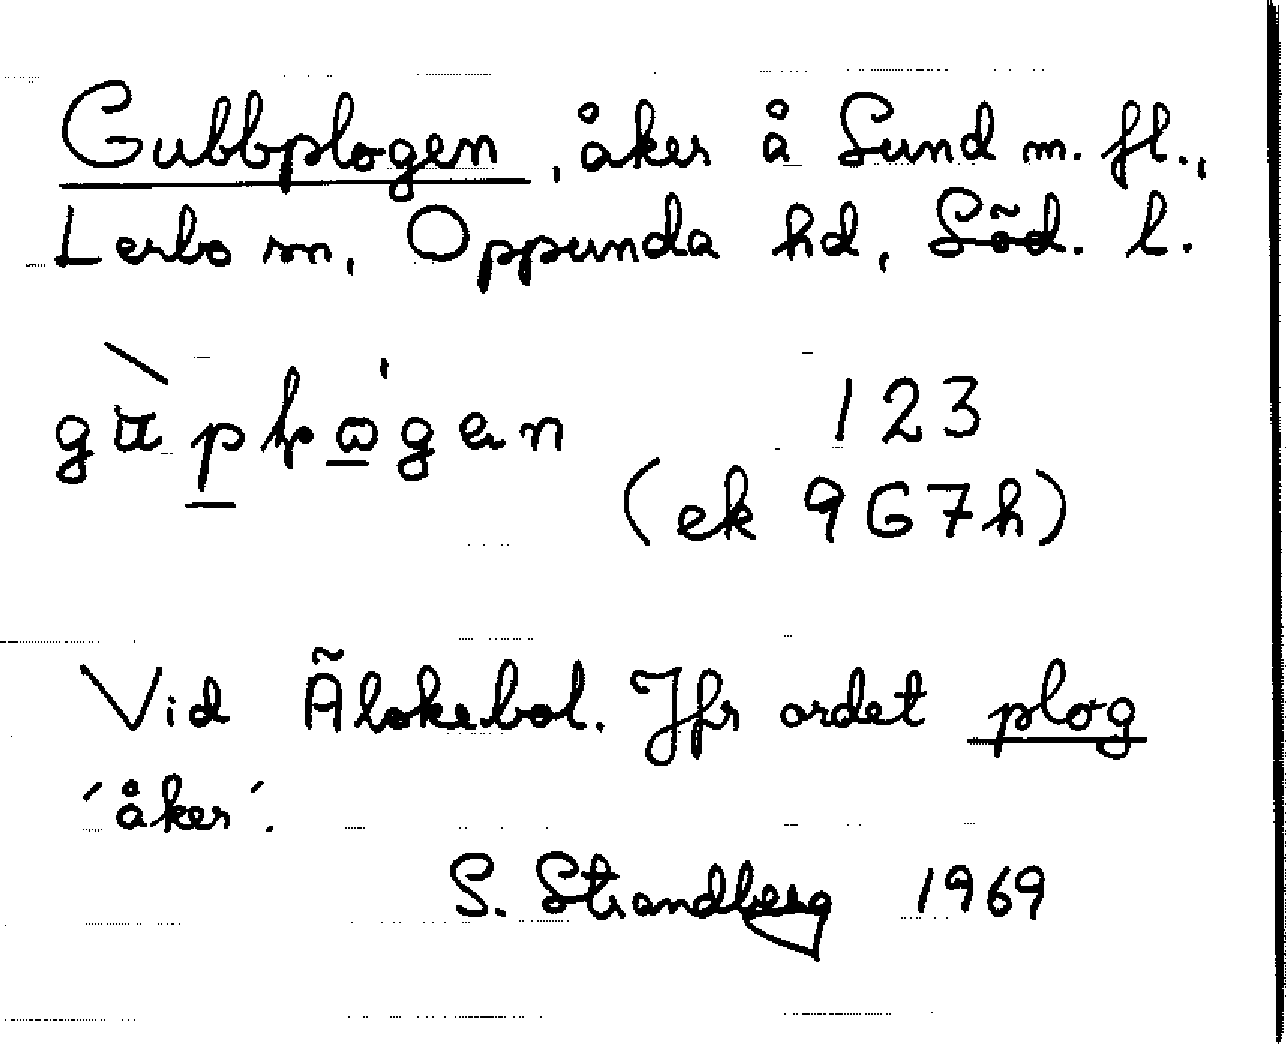 Gubbplogen, åker å Sund m. fl.,
Lerbo sn, Oppunda hd, Söd. l.
123
(ek 967h)
Vid Älskebol. Jfr ordet plog
'åker'.
S. Strandberg 1969